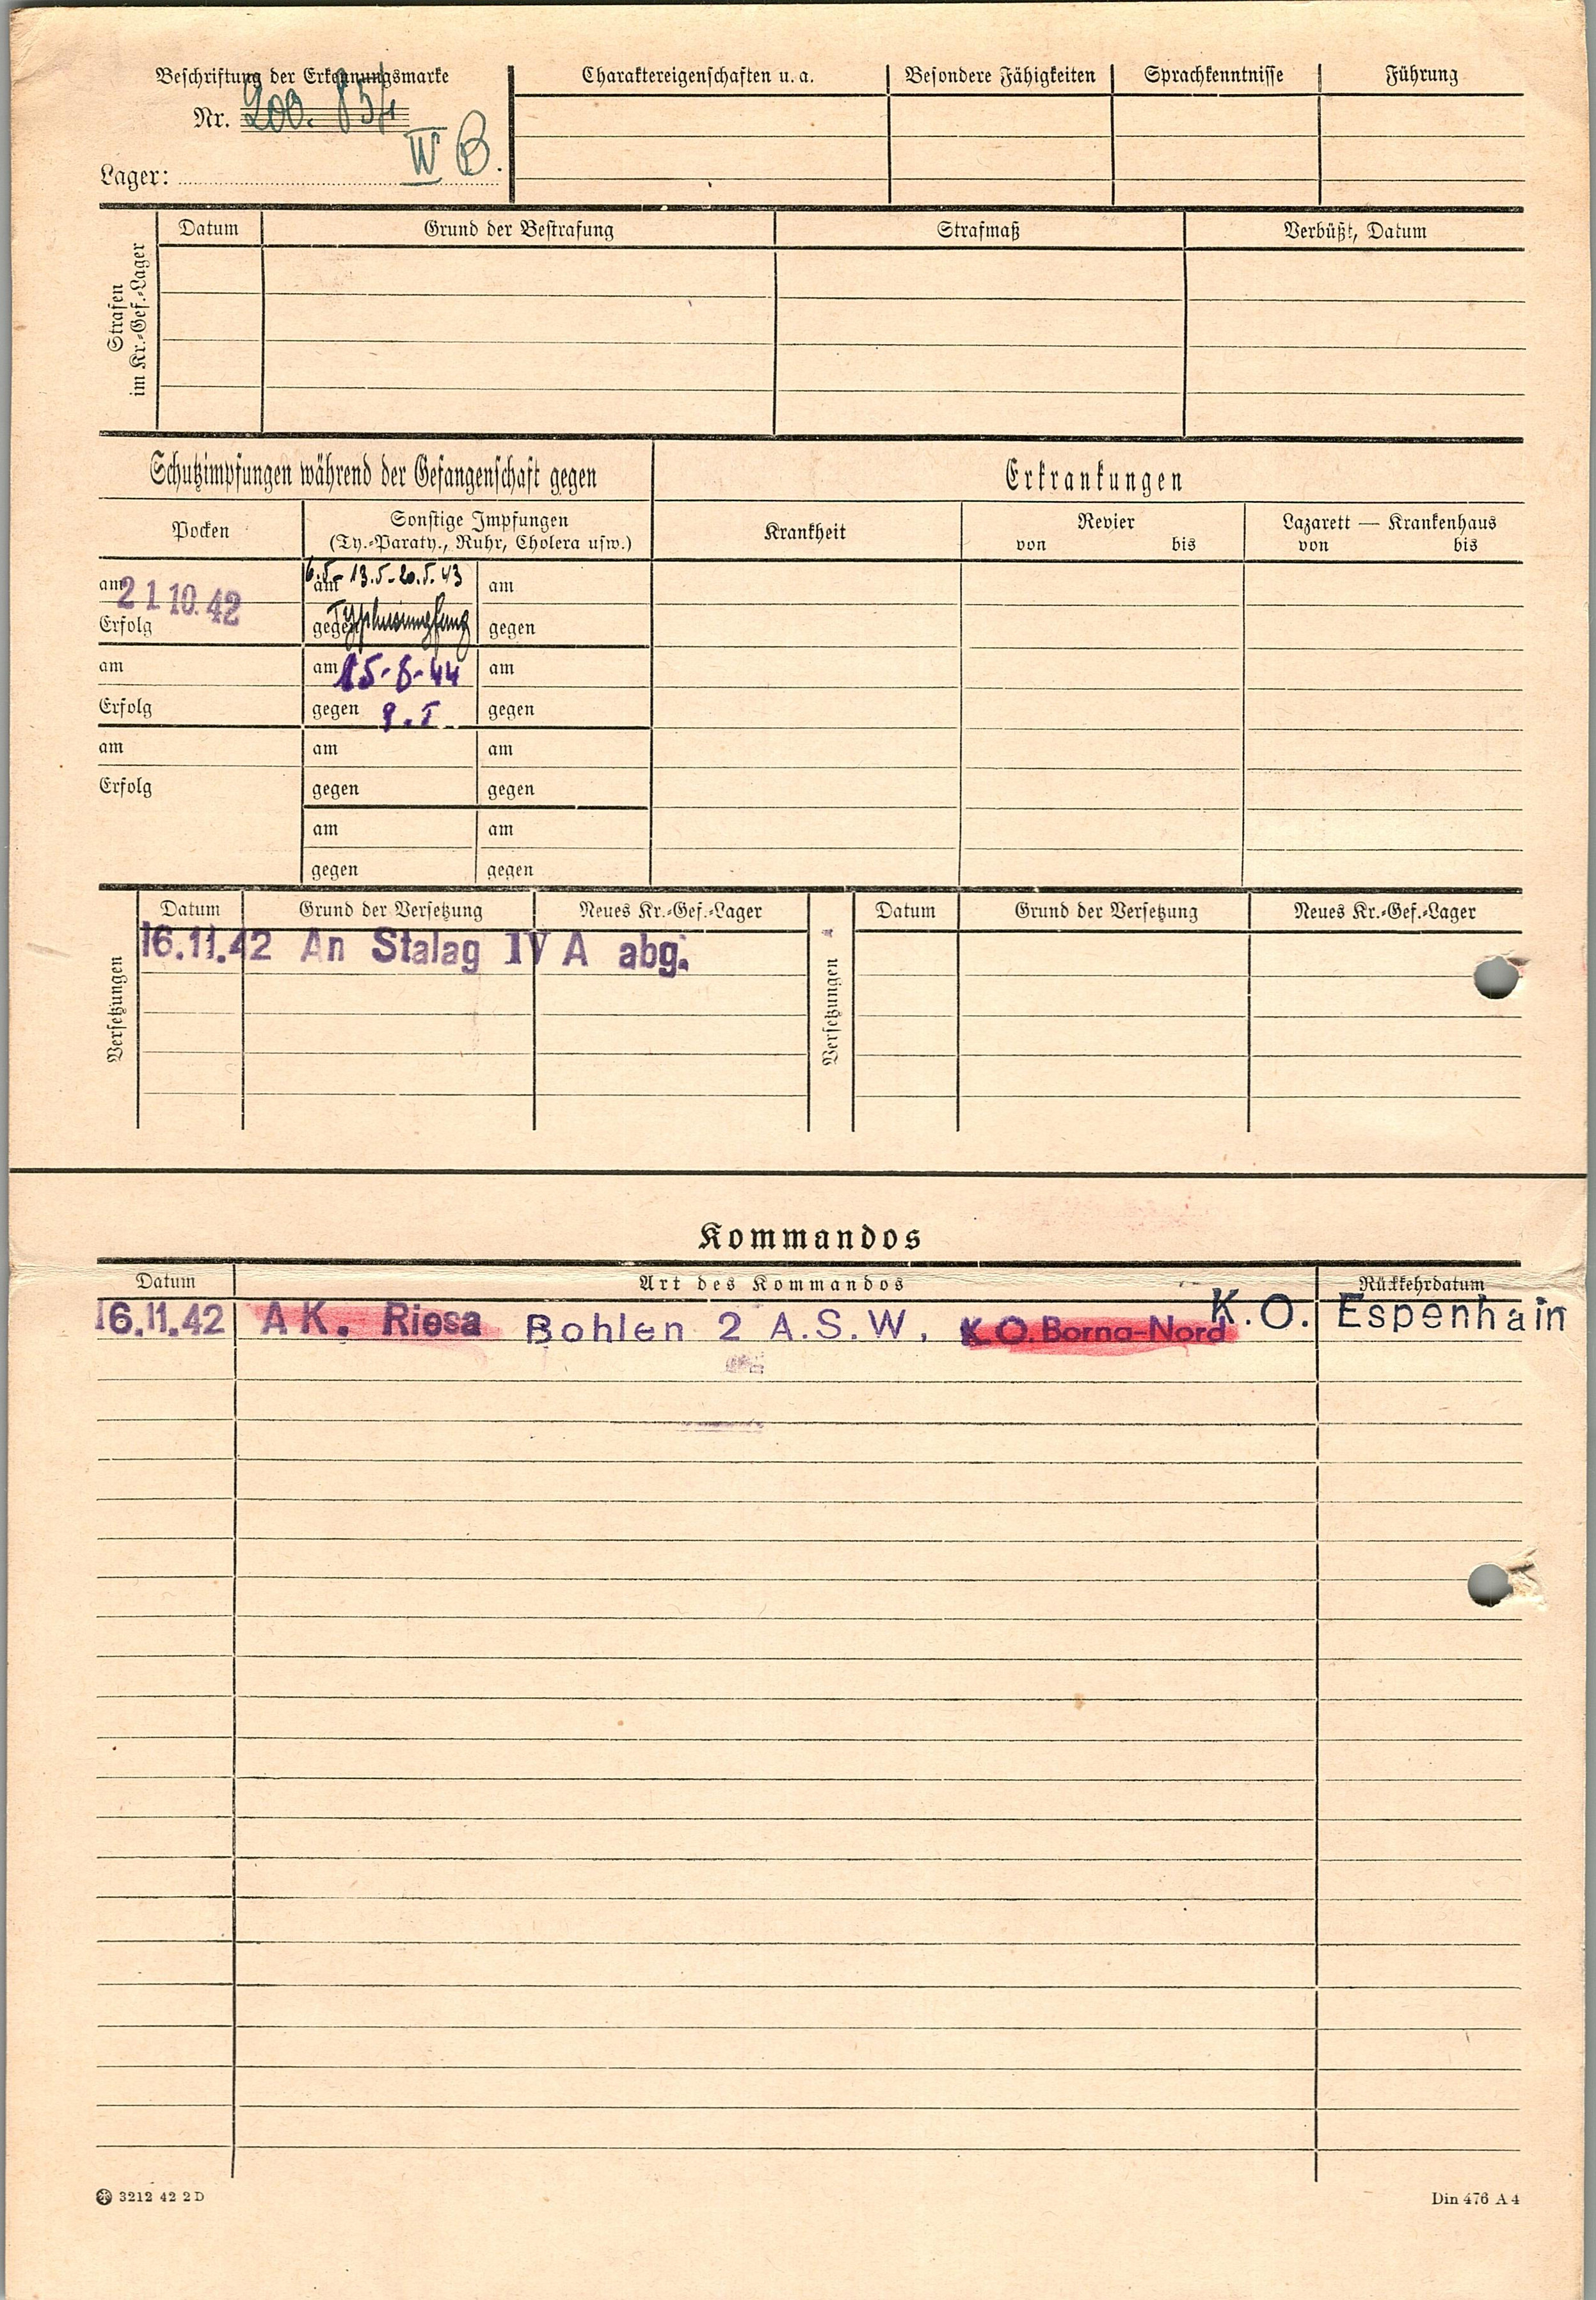 Beschriftung der Erkennungsmarke
Nr. 200. 854
Lager: IV B.
Charaktereigenschaften u. a.
Besondere Fähigkeiten
Sprachkenntnisse
Führung
Strafen
im Kr.-Gef.-Lager
Datum
Grund der Bestrafung
Strafmaß
Verbüßt, Datum
Schutzimpfungen während der Gefangenschaft gegen
Erkrankungen
Pocken
Sonstige Impfungen
(Ty.-Paraty., Ruhr, Cholera usw.)
Krankheit
Revier
von bis
Lazarett — Krankenhaus
von bis
am 21 10. 42
am 6.5- 13.5-20.5.43
am
Erfolg
gegen Typhusimpfung
gegen
am
am 15-8-44
am
Erfolg
gegen
gegen
am
am
am
Erfolg
gegen
gegen
am
am
gegen
gegen
Versetzungen
Datum
Grund der Versetzung
Neues Kr.-Gef.-Lager
Versetzungen
Datum
Grund der Versetzung
Neues Kr.-Gef.-Lager
16.11.42 An Stalag IV A abg.
Kommandos
Datum
Art des Kommandos
Rückkehrdatum
16.11.42 AK. Riesa Bohlen 2 A.S.W. K.O. Borna-Nord K.O. Espenhain
3212 42 2 D
Din 476 A 4